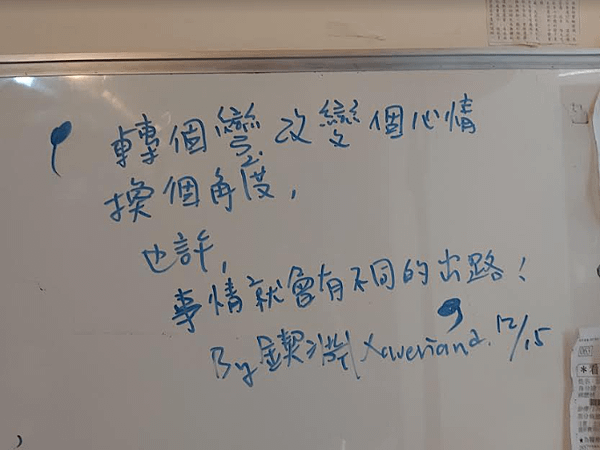 轉個彎改變個心情
換個角度,
也許,
事情就會有不同的出路!
By Xaveriana. 12/15